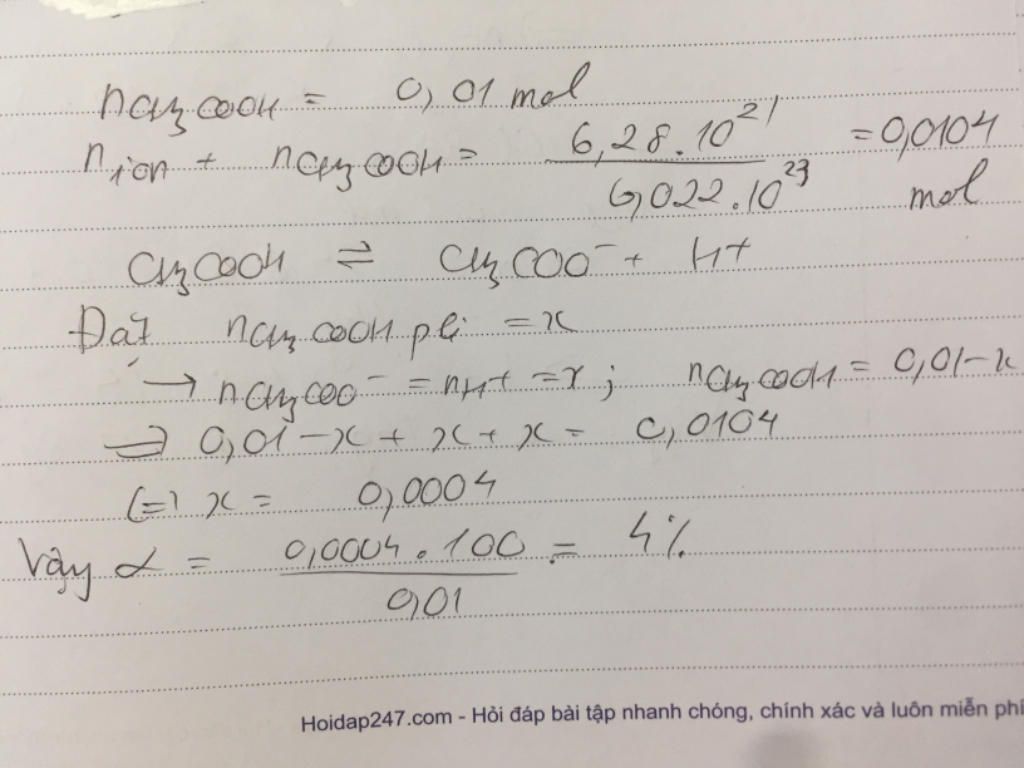 nCH₃COOH = 0,01 mol
nion + nCH₃COOH = 6,28.10²¹ / 6,022.10²³ = 0,0104 mol
CH₃COOH ⇌ CH₃COO⁻ + H+
Đặt nCH₃COOH pli = x
→ nCH₃COO⁻ = nH+ = x; nCH₃COOH = 0,01-x
=> 0,01 - x + x + x = 0,0104
(=) x = 0,0004
Vậy α = 0,0004.100 / 0,01 = 4%
Hoidap247.com - Hỏi đáp bài tập nhanh chóng, chính xác và luôn miễn phí